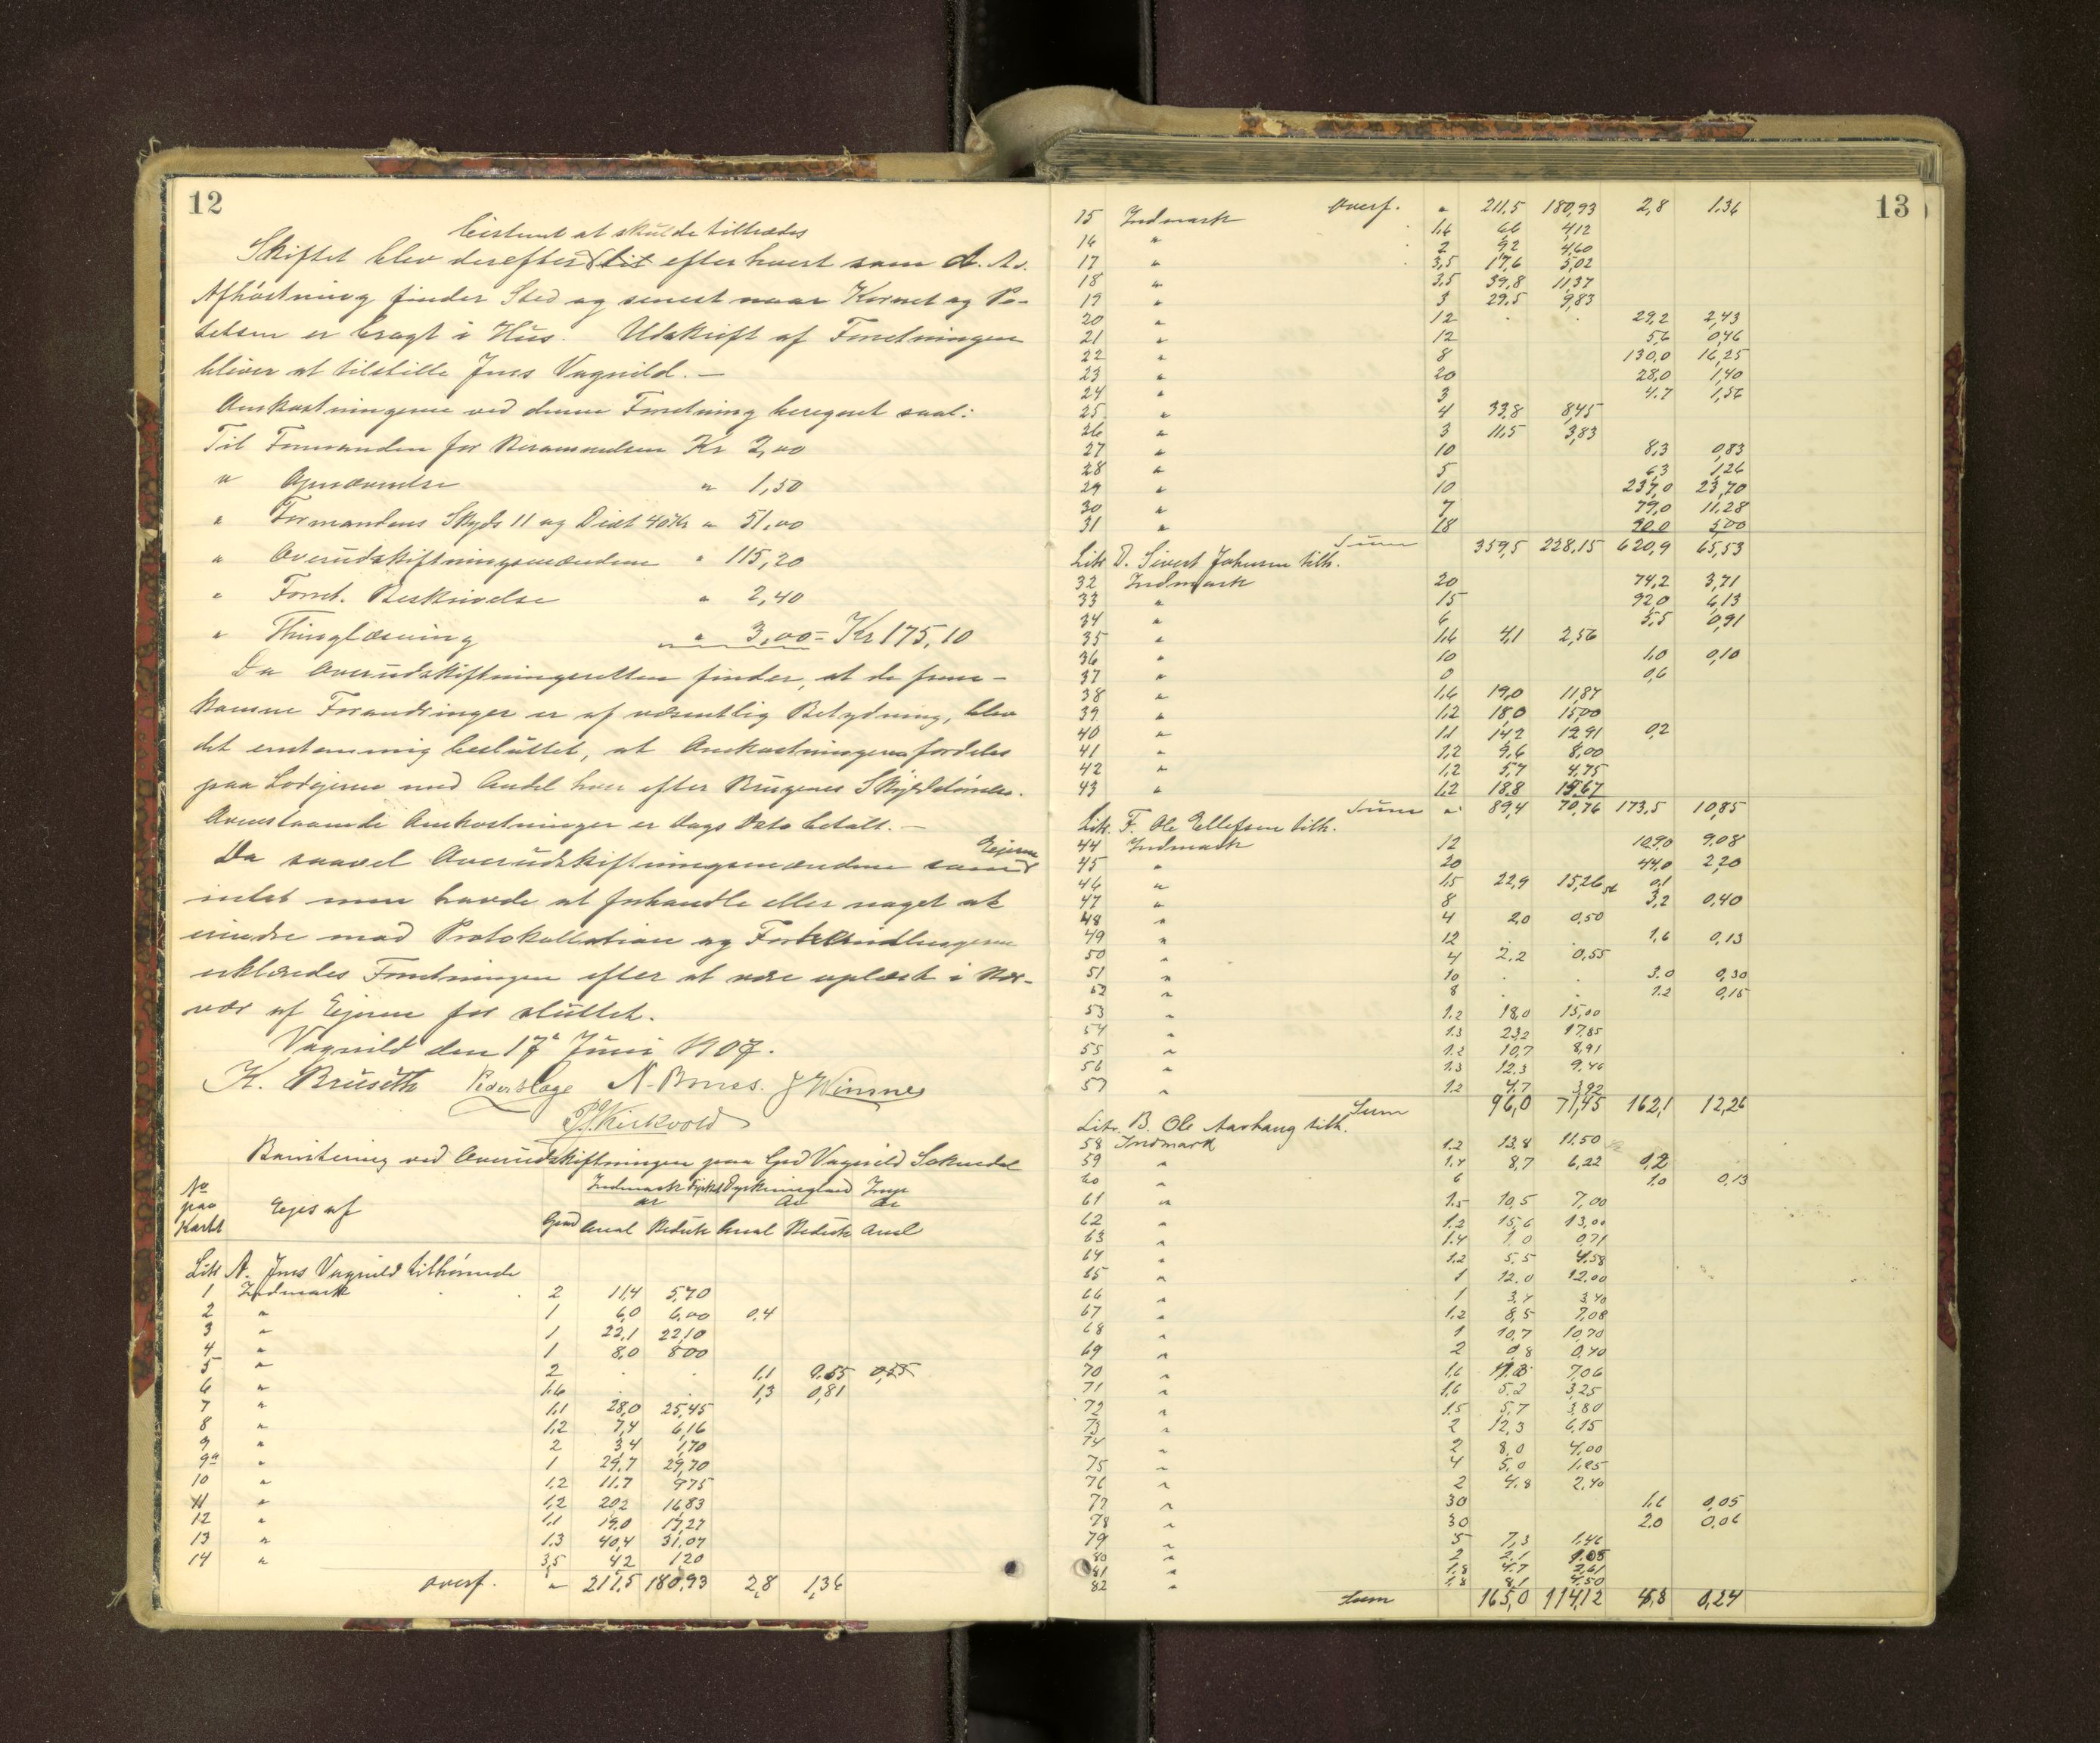 12
bestemt at skulde tiltrædes
Skiftet blev derefter tit efterhvert som d. A.
Afhöstning finder Sted og senest naar Kornet og Po-
teten er bragt i Hus. Udskrift af Forretningen
bliver at tilstille Jens Vagnild. —
Omkostningerne ved denne Forretning beregnet saal:
Til Formanden for Berammelsen Kr 2,00
" Opnævnelse " 1,50
" Formandens Skyds 11 og Diæt 40 Kr " 51,00
" Overudskiftningsmændene " 115,20
" Forret. Beskrivelse " 2,40
" Thinglæsning " 3,00 = Kr 175,10
Da Overudskiftningsretten finder, at de frem-
komne Forandringer er af væsentlig Betydning, blev
det enstemmig besluttet, at Omkostningerne fordeles
paa Lodejerne med Andel hver efter Brugenes Skylddeling.
Ovenstaaende Omkostninger er dags Dato betalt. —
Da saavel Overudskiftningsmændene som Ejerne
intet mere havde at forhandle eller noget at
erindre mod Protokollation og Forhandlingerne
erklæredes Forretningen efter at være oplæst i Nær-
vær af Ejerne for sluttet.
Vagnild den 17de Juni 1907.
K. Bruseth Peder Hage N. Bones. J Winsnes
P. Kirkvold
Bonitering ved Overudskiftningen paa Grd Vagnild Soknedal
No paa Kartet Ejes af Indmark Dyrket ar Dyrkningsland Ar Imp ar
Grad Areal Reduk Areal Reduk Areal
Litr A. Jens Vagnild tilhörende
1 Indmark 2 11,4 5,70
2 " 1 6,0 6,00 0,4
3 " 1 22,1 22,10
4 " 1 8,0 8,00
5 " 2 . . 1,1 0,55 0,55
6 " 1,6 . . 1,3 0,81
7 " 1,1 28,0 25,45
8 " 1,2 7,4 6,16
9 " 2 3,4 1,70
9a " 1 29,7 29,70
10 " 1,2 11,7 9,75
11 " 1,2 20,2 16,83
12 " 1,1 19,0 17,27
13 " 1,3 40,4 31,07
14 " 3,5 4,2 1,20
Overf. " 211,5 180,93 2,8 1,36
13
Overf. " 211,5 180,93 2,8 1,36
15 Indmark 1,6 6,6 4,12
16 " 2 9,2 4,60
17 " 3,5 17,6 5,02
18 " 3,5 39,8 11,37
19 " 3 29,5 9,83
20 " 12 . . 29,2 2,43
21 " 12 5,6 0,46
22 " 8 130,0 16,25
23 " 20 28,0 1,40
24 " 3 4,7 1,56
25 " 4 33,8 8,45
26 " 3 11,5 3,83
27 " 10 8,3 0,83
28 " 5 6,3 1,26
29 " 10 237,0 23,70
30 " 7 79,0 11,28
31 " 18 90,0 5,00
Sum 359,5 228,15 620,9 65,53
Litr D. Sivert Johnsen tilh.
32 Indmark 20 74,2 3,71
33 " 15 92,0 6,13
34 " 6 5,5 0,91
35 " 1,6 4,1 2,56
36 " 10 1,0 0,10
37 " 0 0,6
38 " 1,6 19,0 11,87
39 " 1,2 18,0 15,00
40 " 1,1 14,2 12,91 0,2
41 " 1,2 9,6 8,00
42 " 1,2 5,7 4,75
43 " 1,2 18,8 15,67
Sum " 89,4 70,76 173,5 10,85
Litr. F. Ole Ellefsen tilh.
44 Indmark 12 109,0 9,08
45 " 20 44,0 2,20
46 " 1,5 22,9 15,26 st 0,1
47 " 8 3,2 0,40
48 " 4 2,0 0,50
49 " 12 1,6 0,13
50 " 4 2,2 0,55
51 " 10 . . 3,0 0,30
52 " 8 . . 1,2 0,15
53 " 1,2 18,0 15,00
54 " 1,3 23,2 17,85
55 " 1,2 10,7 8,91
56 " 1,3 12,3 9,46
57 " 1,2 4,7 3,92
Sum 96,0 71,45 162,1 12,26
Litr. B. Ole Aarhaug tilh.
58 Indmark 1,2 13,8 11,50
59 " 1,4 8,7 6,22 0,2
60 " 6 1,0 0,13
61 " 1,5 10,5 7,00
62 " 1,2 15,6 13,00
63 " 1,4 1,0 0,71
64 " 1,2 5,5 4,58
65 " 1 12,0 12,00
66 " 1 3,4 3,40
67 " 1,2 8,5 7,08
68 " 1 10,7 10,70
69 " 2 0,8 0,40
70 " 1,6 11,3 7,06
71 " 1,6 5,2 3,25
72 " 1,5 5,7 3,80
73 " 2 12,3 6,15
74 " 2 8,0 4,00
75 " 4 5,0 1,25
76 " 2 4,8 2,40
77 " 30 1,6 0,05
78 " 30 2,0 0,06
79 " 5 7,3 1,46
80 " 2 2,1 1,05
81 " 1,8 4,7 2,61
82 " 1,8 8,1 4,50
Sum 165,0 114,12 4,8 0,24